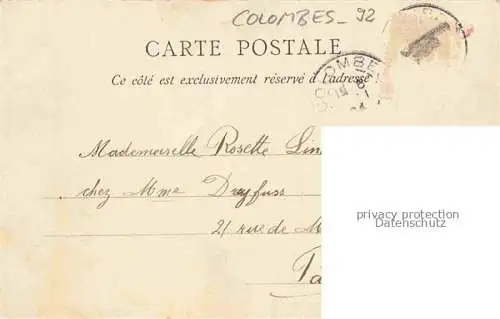 COLOMBES - 92
CARTE POSTALE
Ce côté est exclusivement réservé à l'adresse
COLOMBES
Mademoiselle Rosette Lin
chez Mme Dreyfuss
privacy protection
( Datenschutz )
21 rue de M
Pa